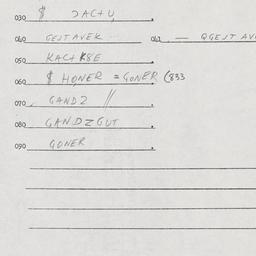 030 $ JACTU
040 GESTAVEK 041 — QGEST AV
050 KACTK8E
060 $ HONER = GONER (833
070 GANDZ //
080 GANDZGUT
090 GONER